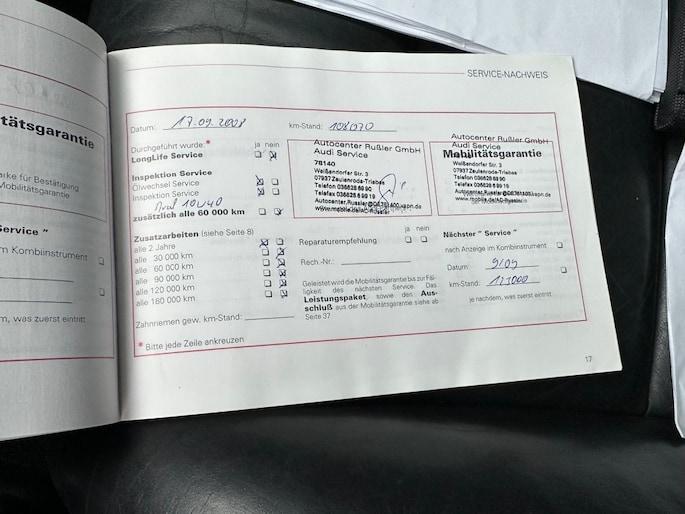 tätsgarantie
rke für Bestätigung
Mobilitätsgarantie
Service "
m Kombiinstrument
m, was zuerst eintritt
SERVICE-NACHWEIS
Datum: 17.09.2008 km-Stand: 108070
Durchgeführt wurde:* ja nein
LongLife Service
Inspektion Service
Ölwechsel Service
Inspektion Service
10W40
zusätzlich alle 60 000 km
Zusatzarbeiten (siehe Seite 8)
alle 2 Jahre
alle 30 000 km
alle 60 000 km
alle 90 000 km
alle 120 000 km
alle 180 000 km
Zahnriemen gew. km-Stand:
* Bitte jede Zeile ankreuzen
Autocenter Rußler GmbH
Audi Service
78140
Weißendorfer Str. 3
07937 Zeulenroda-Triebes
Telefon 036628 69 90
Telefax 036628 6 99 19
ja nein
Reparaturempfehlung
Rech.-Nr.:
Geleistet wird die Mobilitätsgarantie bis zur Fäl-
ligkeit des nächsten Service. Das
Leistungspaket, sowie den Aus-
schluß aus der Mobilitätsgarantie siehe ab
Seite 37
Autocenter Rußler GmbH
Audi Service
Mobilitätsgarantie
Weißendorfer Str. 3
07937 Zeulenroda-Triebes
Telefon 036628 69 90
Telefax 036628 6 99 19
Nächster " Service "
nach Anzeige im Kombiinstrument
Datum: 9/09
km-Stand: 123000
je nachdem, was zuerst eintritt
17